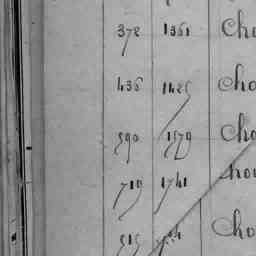 372 1361 Cho
436 1425 Cho
590 1579 Cho
719 1741 hou
515 Cho